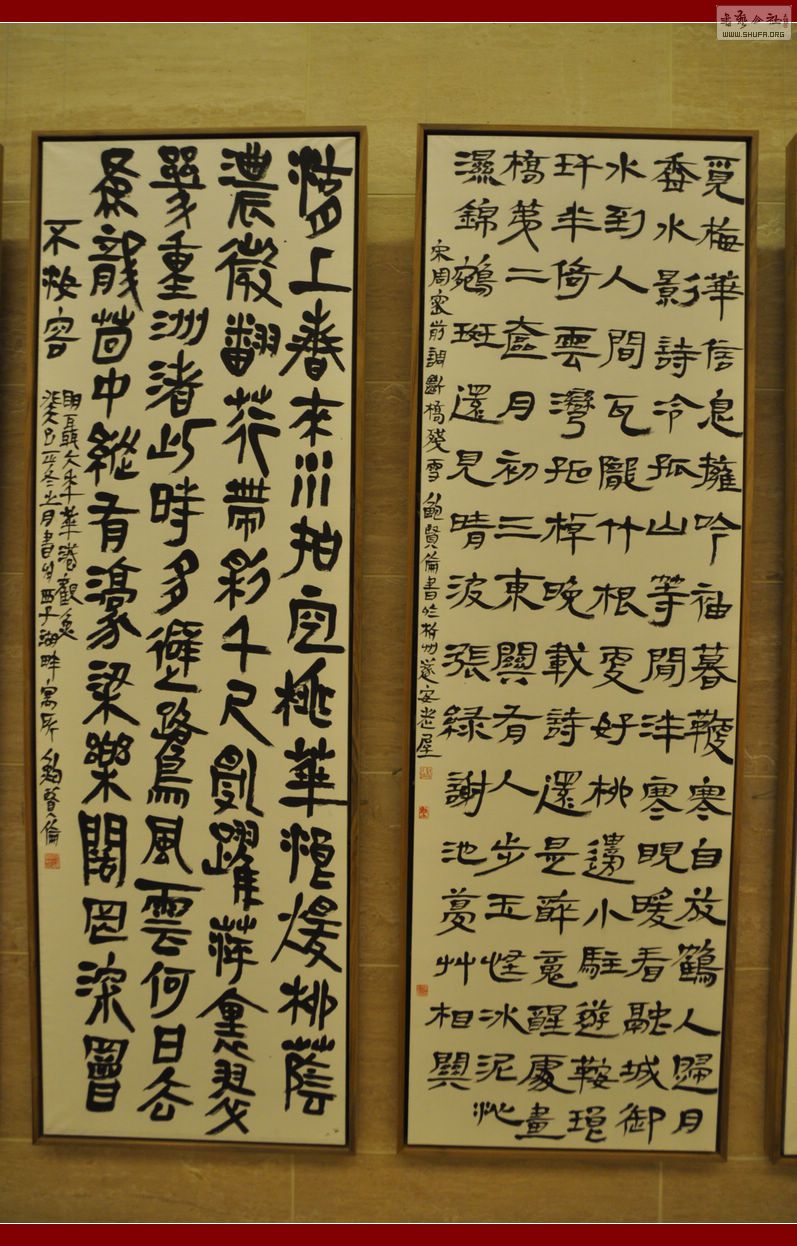 覓梅華信息擁吟袖暮鞭寒自放鶴人歸月
香水影詩冷孤山等閒泮寒晛暖看融城御
水到人間瓦隴竹根更好柳邊小駐遊鞍琅
玕半倚雲灣拖棹晚載詩還是醉魂醒處畫
橋第二奩月初三東關有人步玉怪冰泥沁
濕錦鵷斑還見晴波漲綠謝池夢艸相關
宋周密前調斷橋殘雪 鮑賢倫書於杭州遂安老屋
湖上春來水拍空桃華浪煖柳蔭
濃微翻荇帶彩千尺亂躍萍翠
幾重洲渚此時多避鷺風雲何日去
為龍箇中縱有濠梁樂闊罔深罾
不汝容
明聶大年華港觀魚
癸巳年冬之月書於西子湖畔寓所 鮑賢倫
書藝公社
WWW.SHUFA.ORG